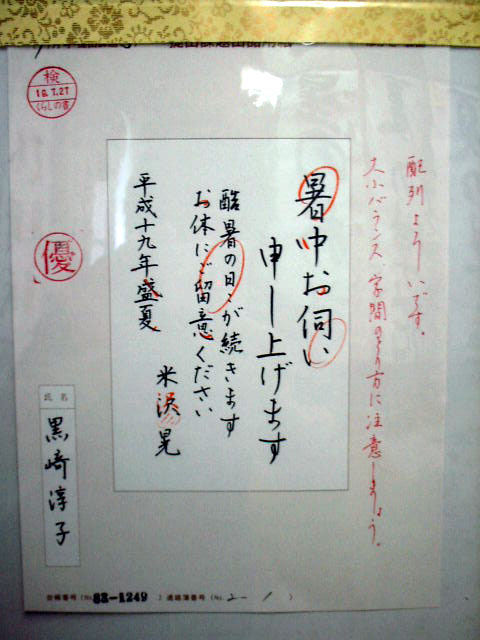 検
19.7.27
くらしの書
配列よろしいです。
大小バランス 字間のとり方に注意しましょう。
暑中お伺い
申し上げます
酷暑の日々が続きます
お休にご留意ください
平成十九年盛夏
米沢 晃
優
氏名
黒崎淳子
台帳番号(No.83-1249)通信簿番号(No.2-1)